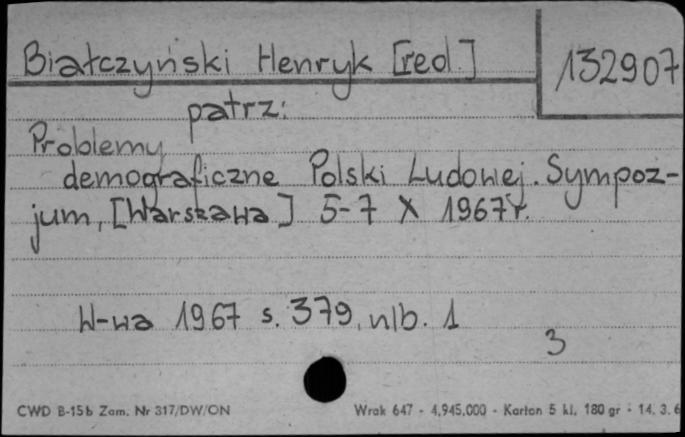 Białczyński Henryk [red.]
132907
patrz:
Problemy
demograficzne Polski Ludowej. Sympoz-
jum, [Warszawa] 5-7 X 1967r.
W-wa 1967 s. 379, nlb. 1
3
CWD B-15b Zam. Nr 317/DW/ON
Wrak 647 - 4,945,000 - Karton 5 kl. 180 gr - 14. 3. 6